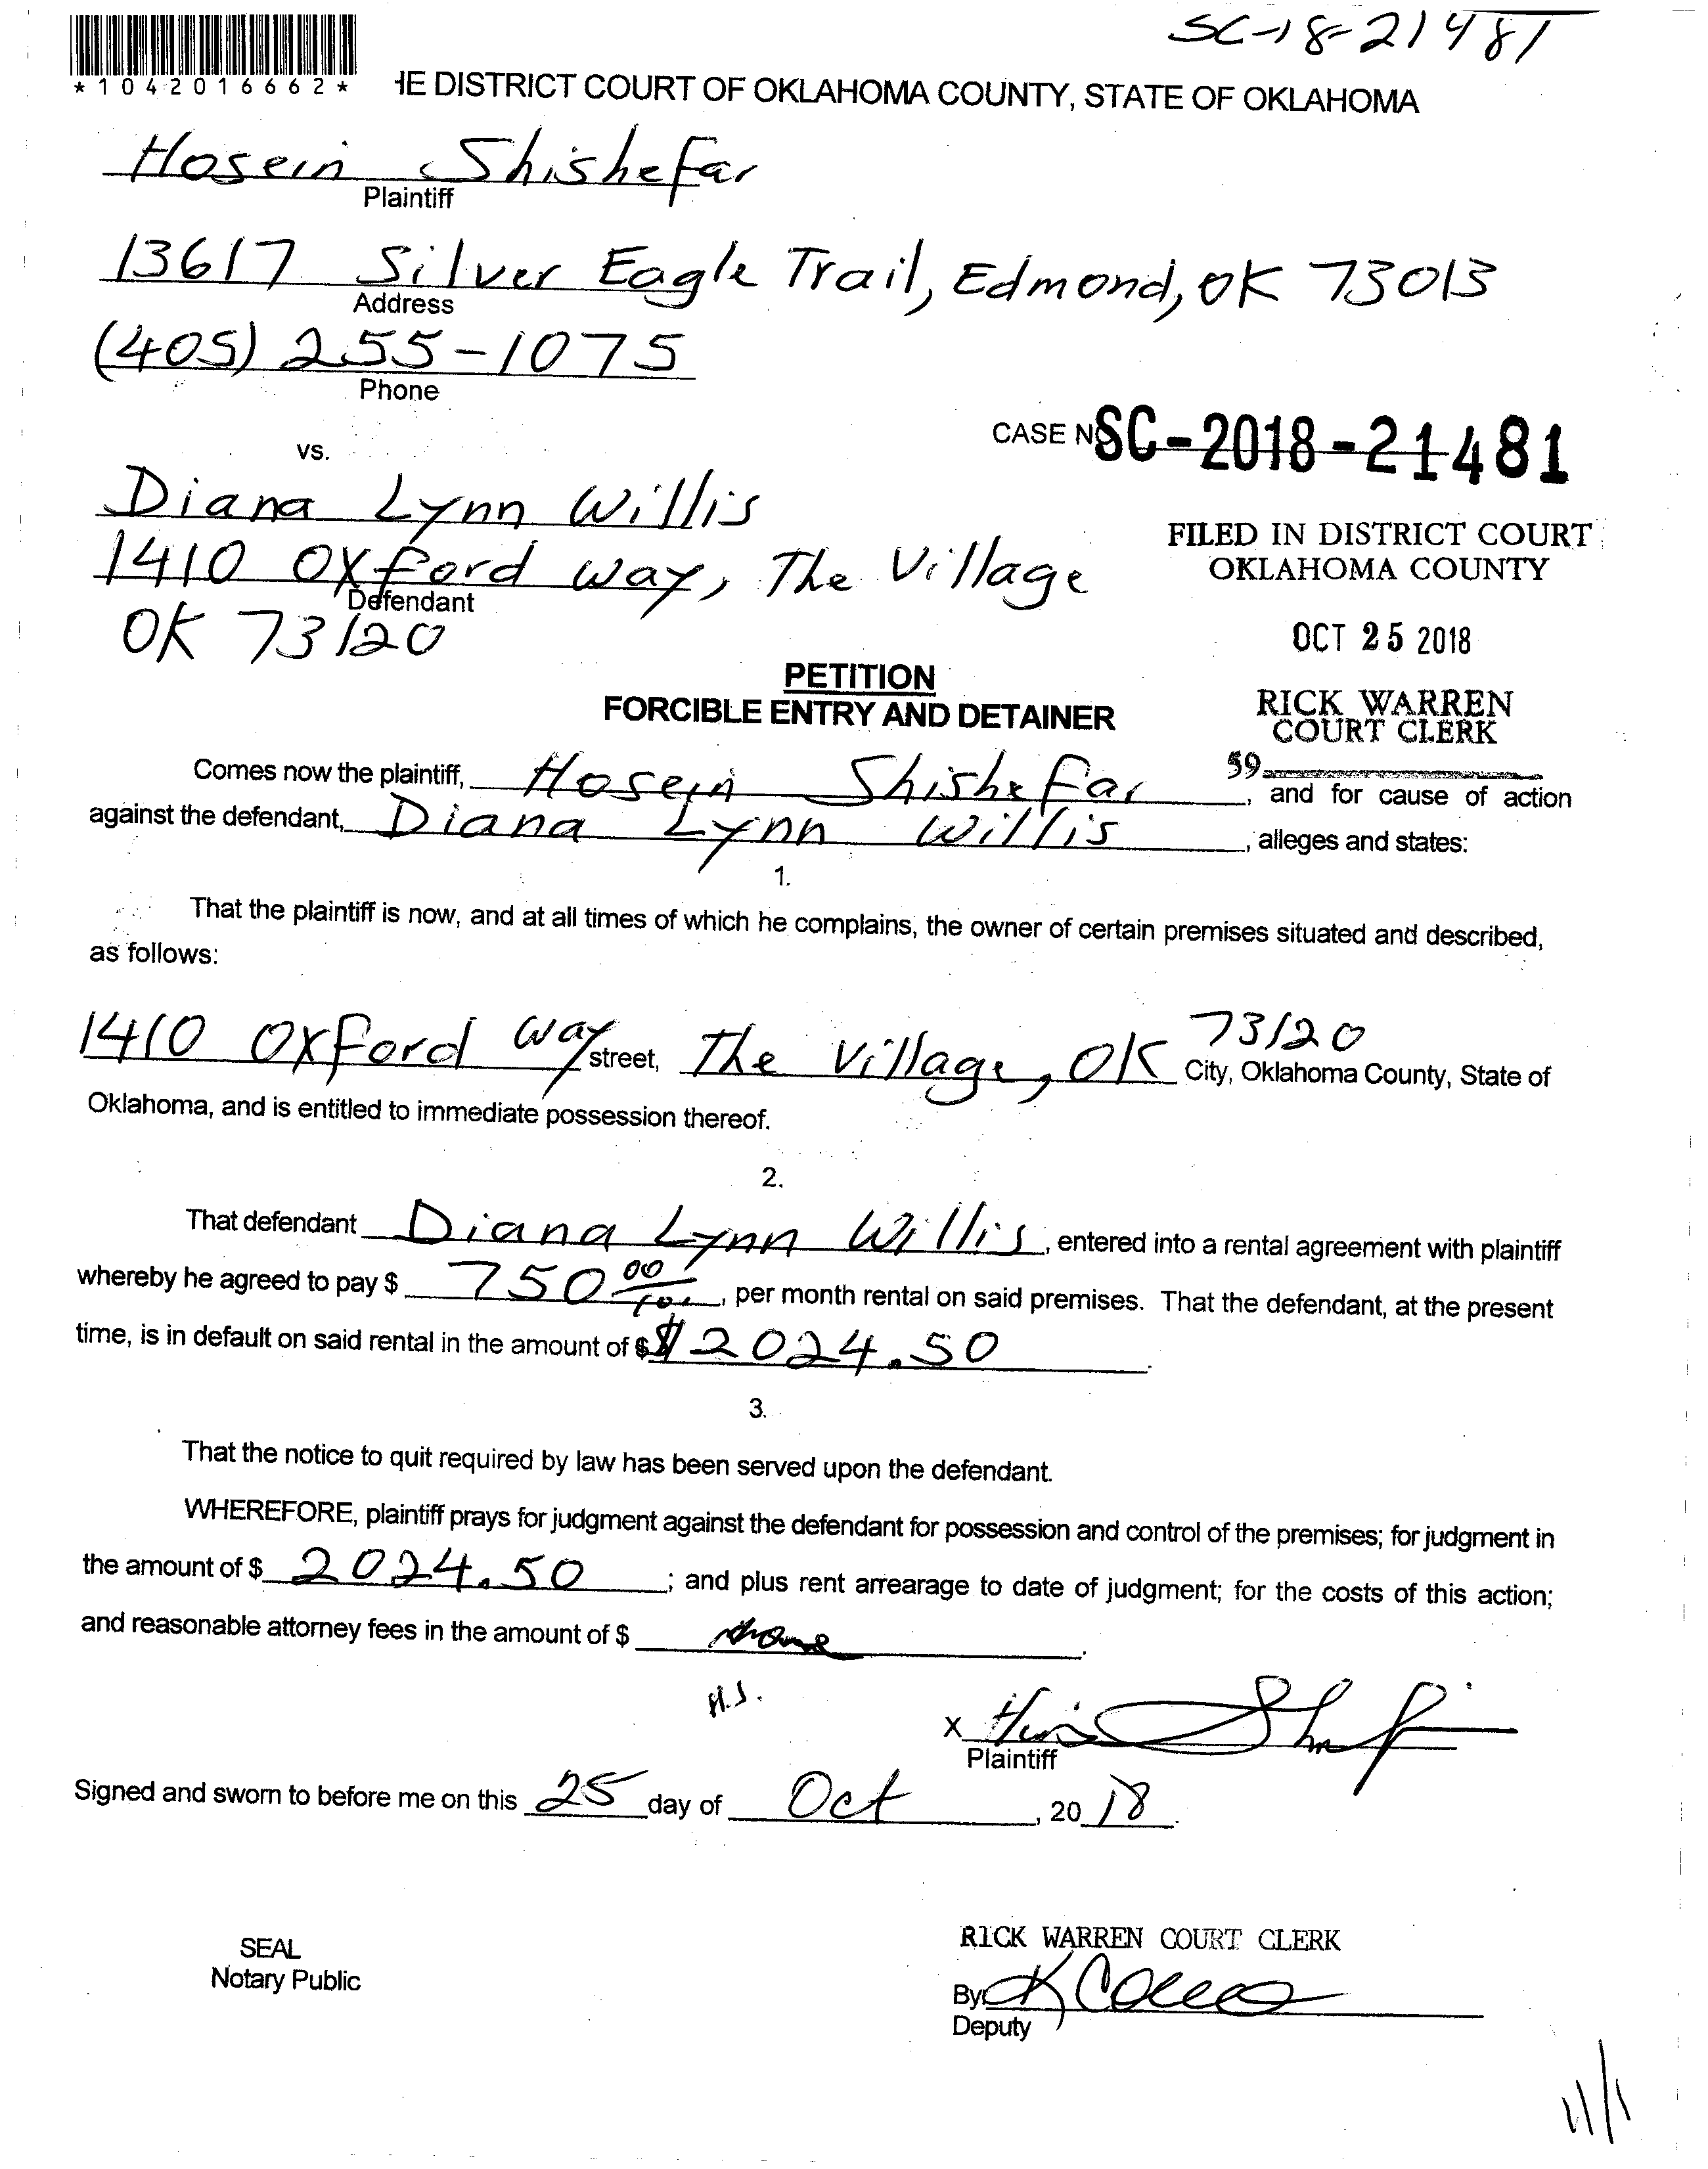 SC-18-21481
*1042016662*
HE DISTRICT COURT OF OKLAHOMA COUNTY, STATE OF OKLAHOMA
Hosein Shishefar
Plaintiff
13617 Silver Eagle Trail, Edmond, OK 73013
Address
(405) 255-1075
Phone
vs.
CASE NO SC-2018-21481
Diana Lynn Willis
1410 Oxford way, The Village
Defendant
OK 73120
FILED IN DISTRICT COURT
OKLAHOMA COUNTY
OCT 25 2018
RICK WARREN
COURT CLERK
59
PETITION
FORCIBLE ENTRY AND DETAINER
Comes now the plaintiff, Hosein Shishefar, and for cause of action
against the defendant, Diana Lynn Willis, alleges and states:
1.
That the plaintiff is now, and at all times of which he complains, the owner of certain premises situated and described,
as follows:
1410 Oxford way street, The Village, OK 73120 City, Oklahoma County, State of
Oklahoma, and is entitled to immediate possession thereof.
2.
That defendant Diana Lynn Willis, entered into a rental agreement with plaintiff
whereby he agreed to pay $ 750 00/100, per month rental on said premises. That the defendant, at the present
time, is in default on said rental in the amount of $ $2024.50.
3.
That the notice to quit required by law has been served upon the defendant.
WHEREFORE, plaintiff prays for judgment against the defendant for possession and control of the premises; for judgment in
the amount of $ 2024.50; and plus rent arrearage to date of judgment; for the costs of this action;
and reasonable attorney fees in the amount of $ none.
H.S.
X
Plaintiff
Signed and sworn to before me on this 25 day of Oct, 2018.
SEAL
Notary Public
RICK WARREN COURT CLERK
By
Deputy
11/1